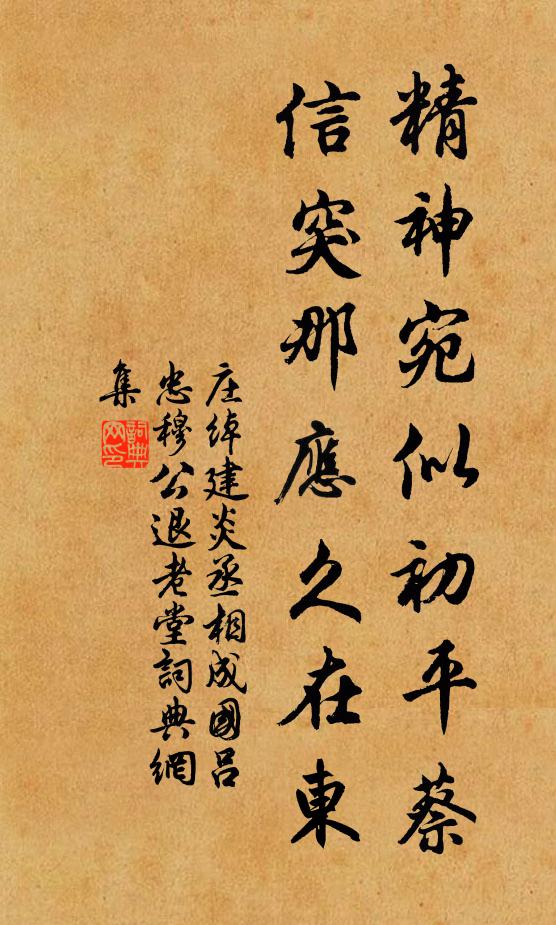 精神宛似初平蔡
信突那應久在東
庄綽建炎丞相成國呂
忠穆公退老堂詞典網
集
詞典網印